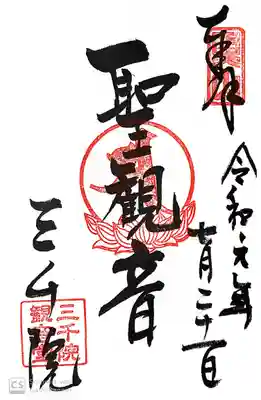 奉拝
令和元年
七月二十一日
聖観音
三千院
三千院
観音堂